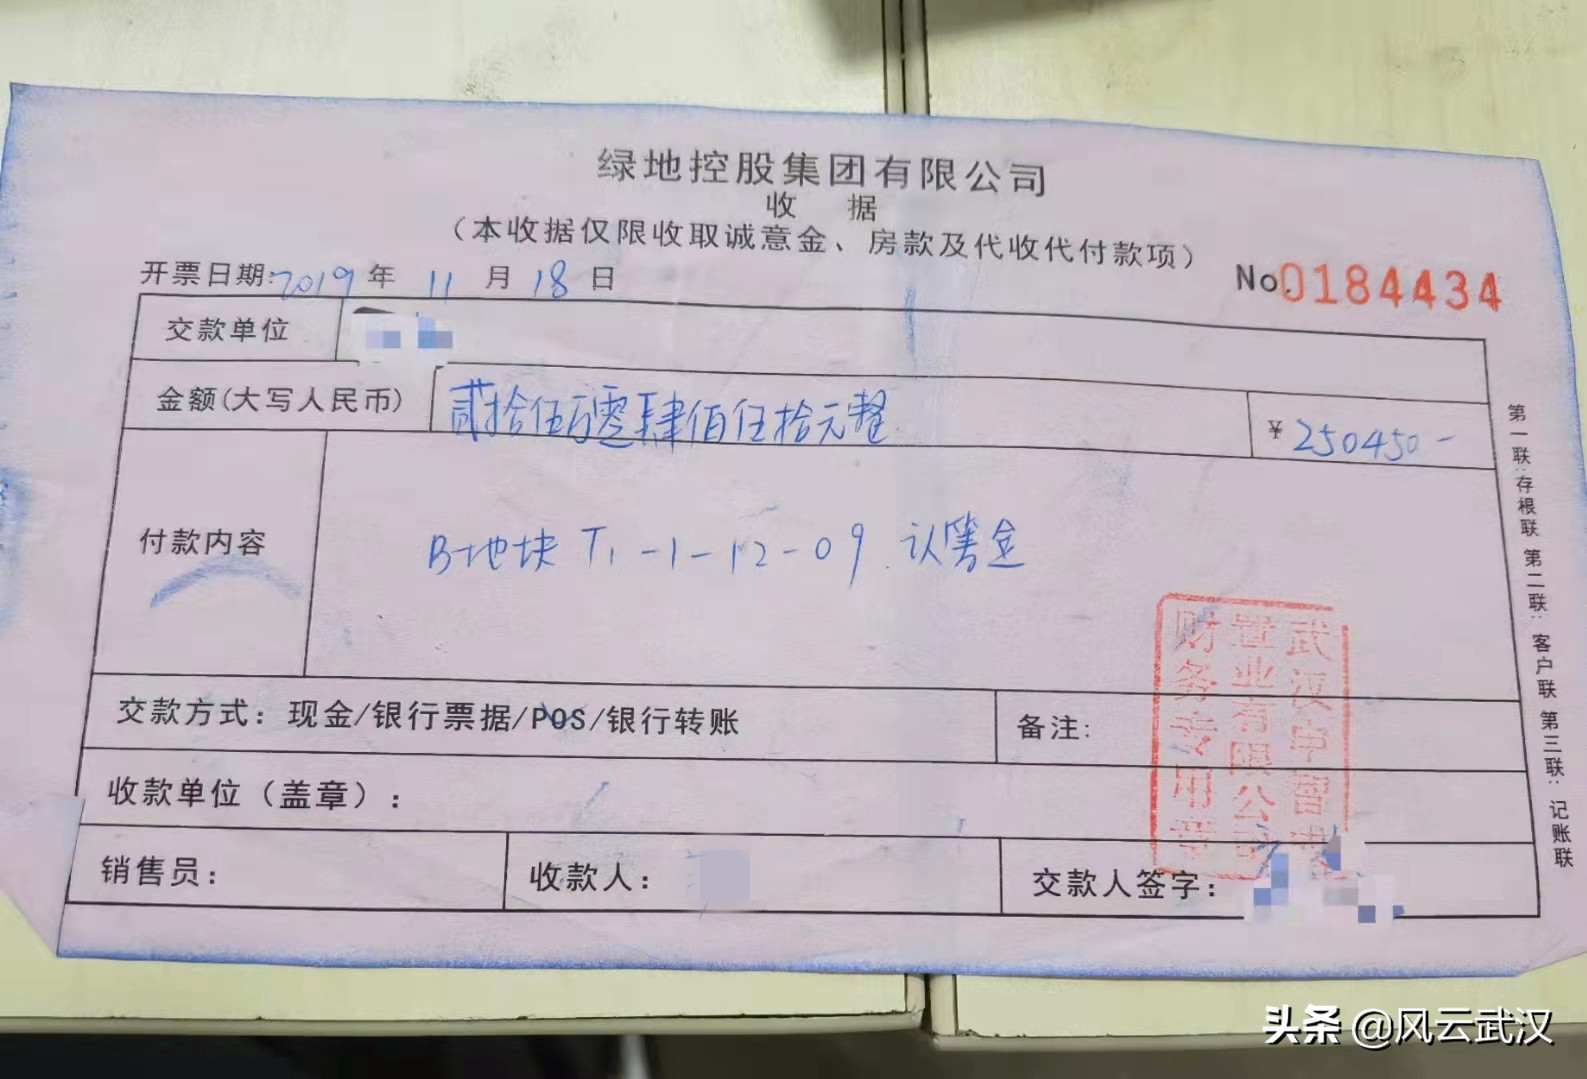 绿地控股集团有限公司
收 据
（本收据仅限收取诚意金、房款及代收代付款项）
开票日期:2019年 11 月 18 日
No.0184434
交款单位
金额(大写人民币) 贰拾伍万零肆佰伍拾元整 ¥ 250450-
付款内容 B地块 T1-1-12-09 认筹金
交款方式：现金/银行票据/POS/银行转账 备注:
收款单位（盖章）：
销售员： 收款人： 交款人签字：
第一联：存根联 第二联：客户联 第三联：记账联
置业有限公司
财务专用章
头条 @风云武汉